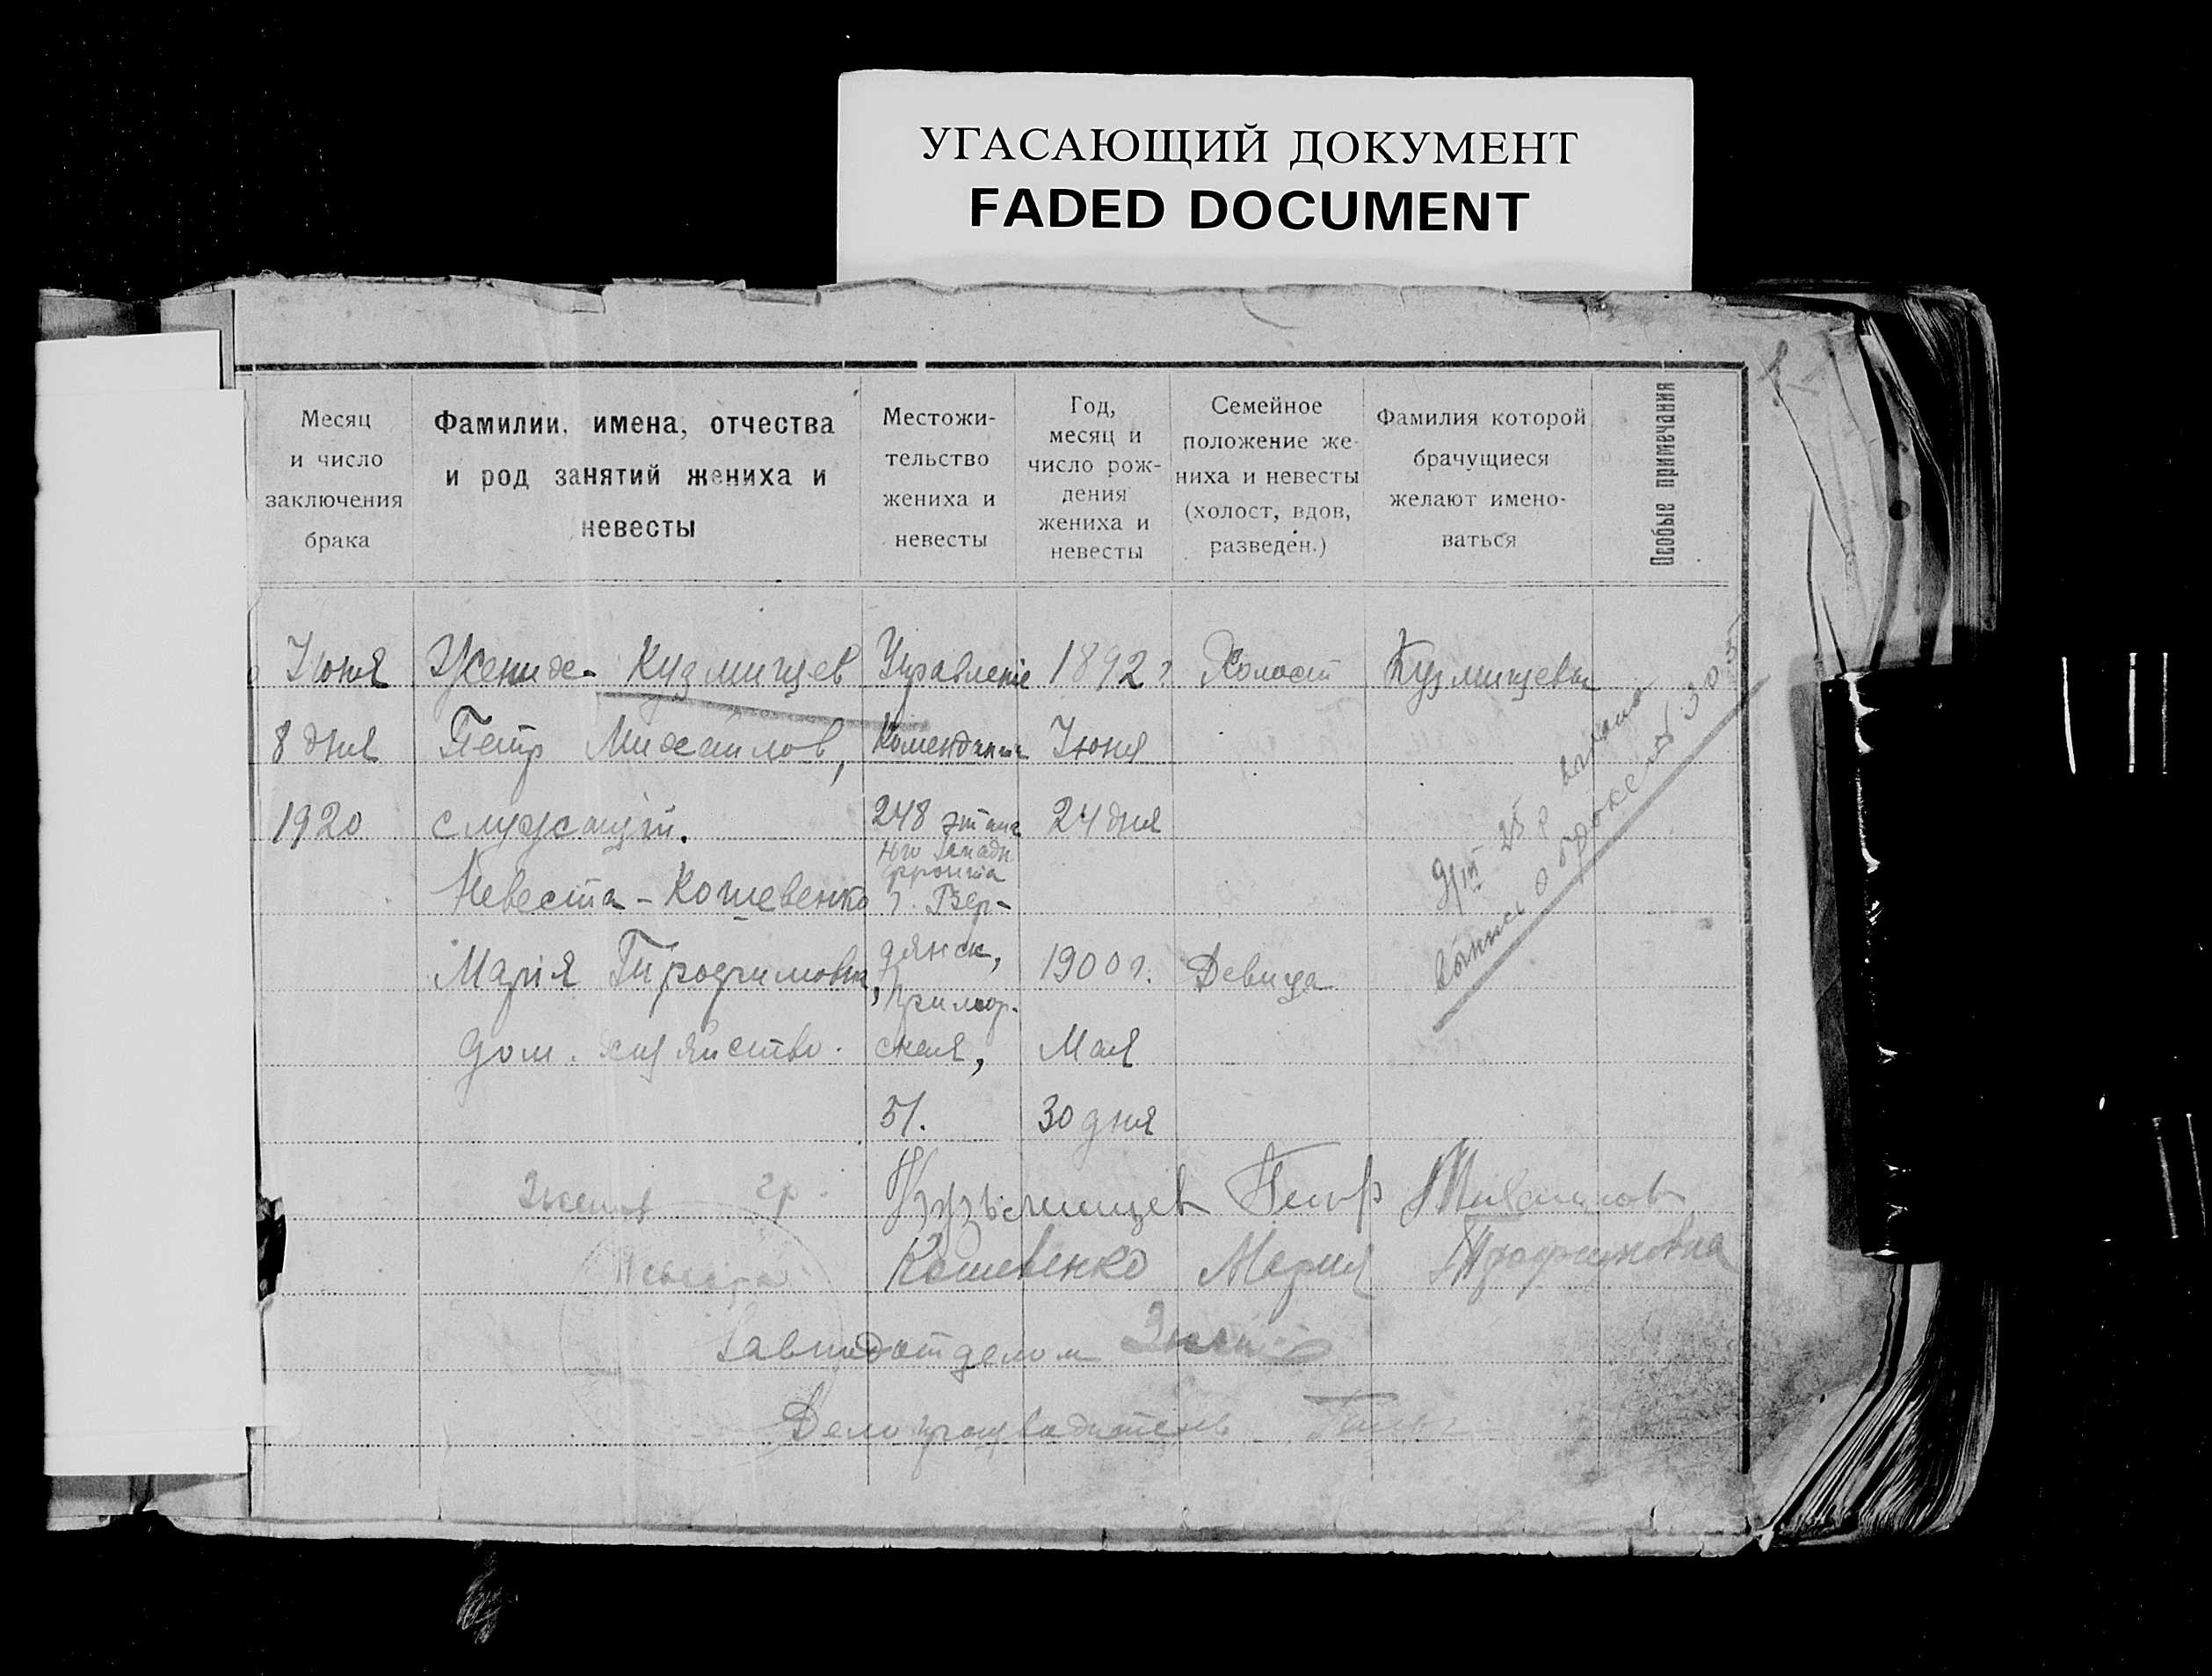 УГАСАЮЩИЙ ДОКУМЕНТ
FADED DOCUMENT
Месяц
и число
заключения
брака
Фамилии, имена, отчества
и род занятий жениха и
невесты
Местожи-
тельство
жениха и
невесты
Год,
месяц и
число рож-
дения
жениха и
невесты
Семейное
положение же-
ниха и невесты
(холост, вдов,
разведен.)
Фамилия которой
брачущиеся
желают имено-
ваться
Особые примечания
Июня
8 дня
1920
Жених - Кузмищев
Петр Михайлов,
служащий.
Невеста - Кошевенко
Марія Трофимовна,
дом. хозяйство.
Управленіе
Коменданта
248 этапа
Юго Западн
фронта
г. Бер-
дянск,
Примор-
ская,
51.
1892 г
Июня
24 дня
1900 г.
Мая
30 дня
Холост
Девица
Кузмищевы
выдана
выпись о браке № 305
Жених гр.
Кузьмищев Петр Михайлов
Невеста
Кошевенко Мария Трофимовна
Завподотделом
Делопроизводитель